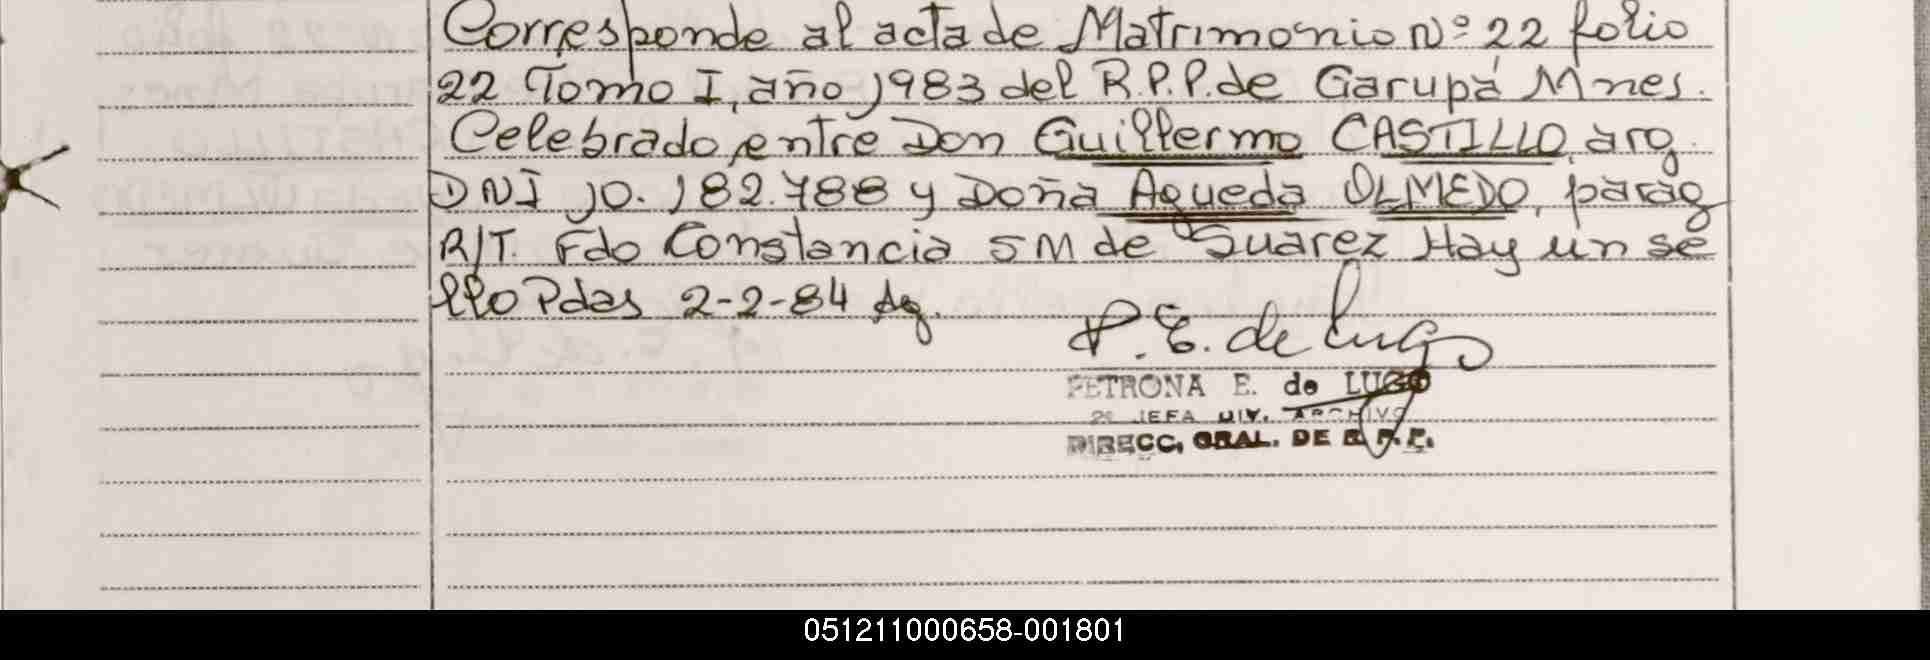 Corresponde al acta de Matrimonio Nº 22 folio
22 Tomo I, año 1983 del R.P.P. de Garupá Mnes.
Celebrado, entre Don Guillermo CASTILLO, arg.
DNI 10.182.788 y Doña Agueda OLMEDO, parag
R/T. Fdo Constancia S M de Suarez Hay un se
llo Pdas 2-2-84 Ag.
P. E. de Lugo
PETRONA E. de LUGO
2ª JEFA DIV. ARCHIVO
DIRECC. GRAL. DE R.P.P.
051211000658-001801